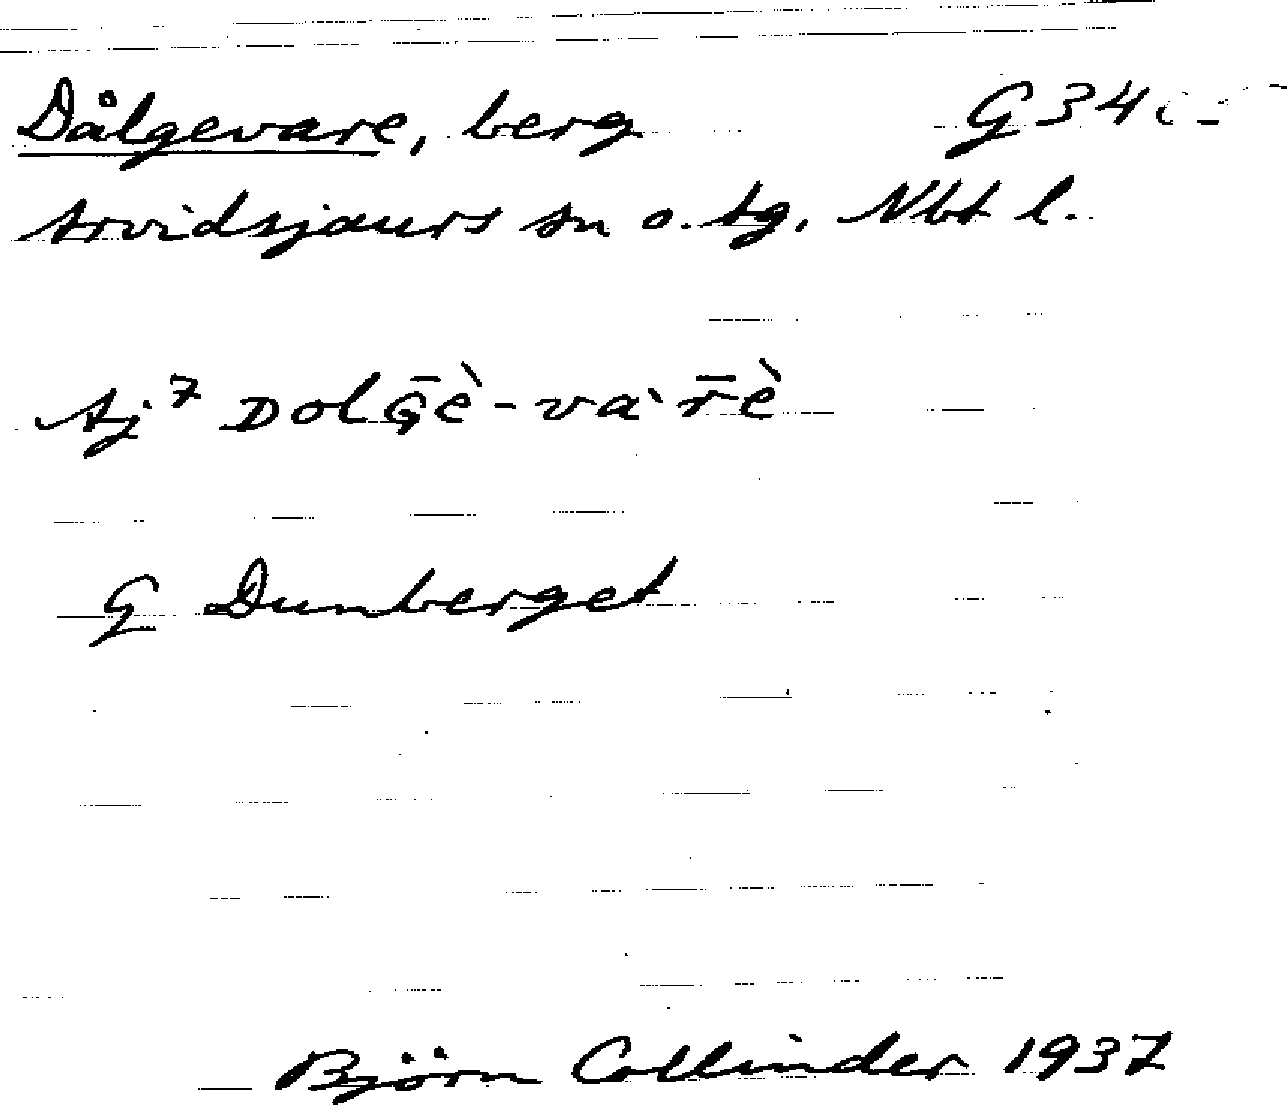 Dålgevare, berg G34
Arvidsjaurs sn o. tg, Nbt l.
Aj⁷ Dolɢ̄è-va`r̄è
G Dunberget
Björn Collinder 1937